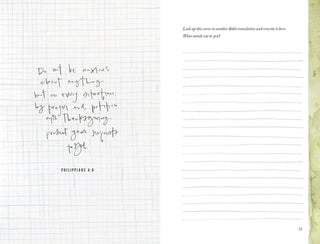 Do not be anxious
about anything,
but in every situation,
by prayer and petition
with thanksgiving,
present your requests
to God.
PHILIPPIANS 4:6
Look up this verse in another Bible translation and rewrite it here.
What stands out to you?